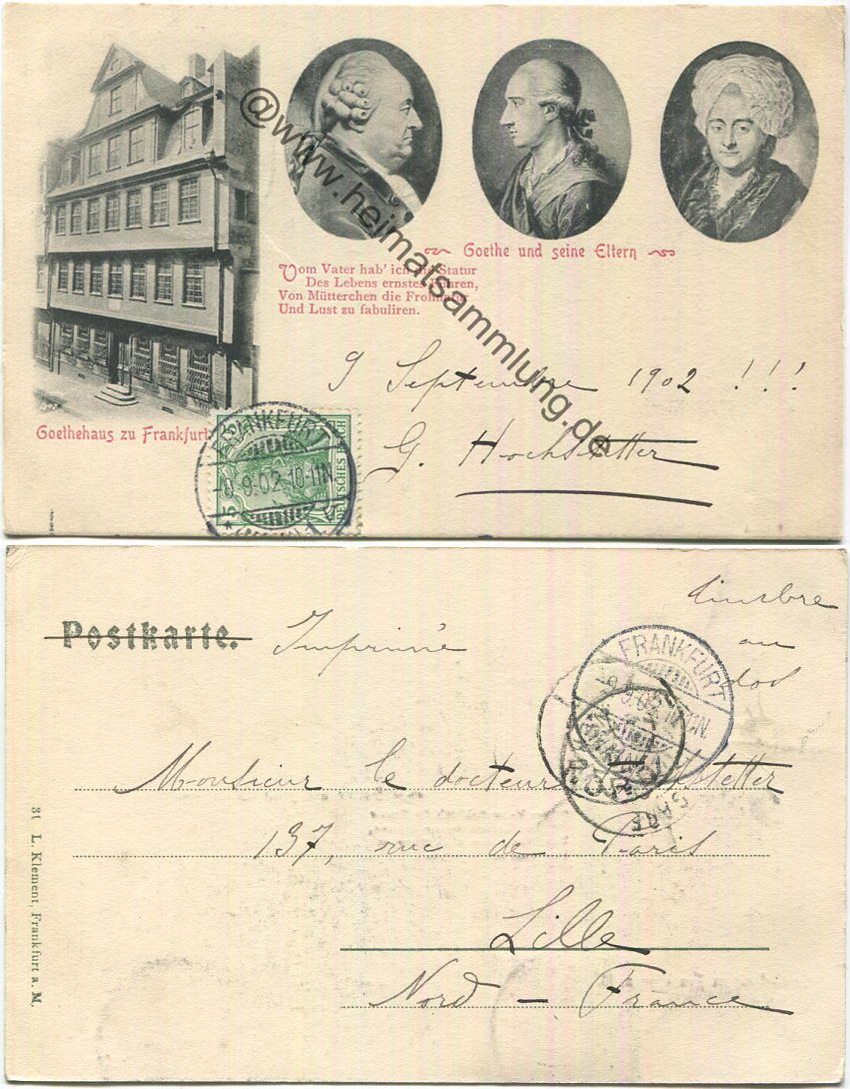 Goethe und seine Eltern
Vom Vater hab' ich die Statur
Des Lebens ernstes Führen,
Von Mütterchen die Frohnatur
Und Lust zu fabuliren.
9 Septembre 1902 !!!
G. Hochstetter
Goethehaus zu Frankfurt
FRANKFURT
9.02.10-11N.
DEUTSCHES REICH
5
@www.heimatsammlung.de
Postkarte.
Imprimé
timbre
au
dos
FRANKFURT
9.02.10-11N.
GARE
Monsieur le docteur Hochstetter
137, rue de Paris
Lille
Nord - France
31 L. Klement, Frankfurt a. M.